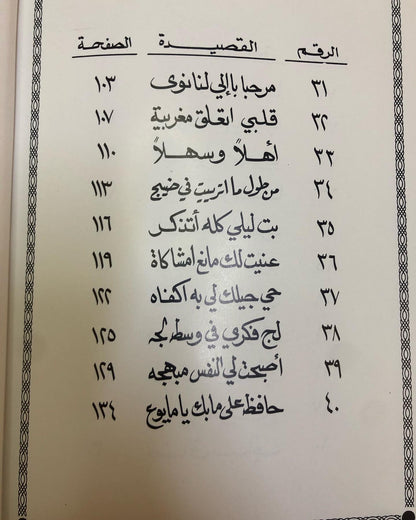 الرقم القصيدة الصفحة
٣١ مرحبا باللي لنا نوى ١٠٣
٣٢ قلبي اتعلق مغربية ١٠٧
٣٣ أهلاً وسهلاً ١١٠
٣٤ من طول ما اتربيت في ضيج ١١٣
٣٥ بت ليلي كله أتذكر ١١٦
٣٦ عنيت لك مانع امشاكاة ١١٩
٣٧ حي جيلك لي به اكفاه ١٢٢
٣٨ لج فكري في وسط لجه ١٢٥
٣٩ أصبحت لي النفس مبهجه ١٢٩
٤٠ حافظ على مابك يا مايوع ١٣٤